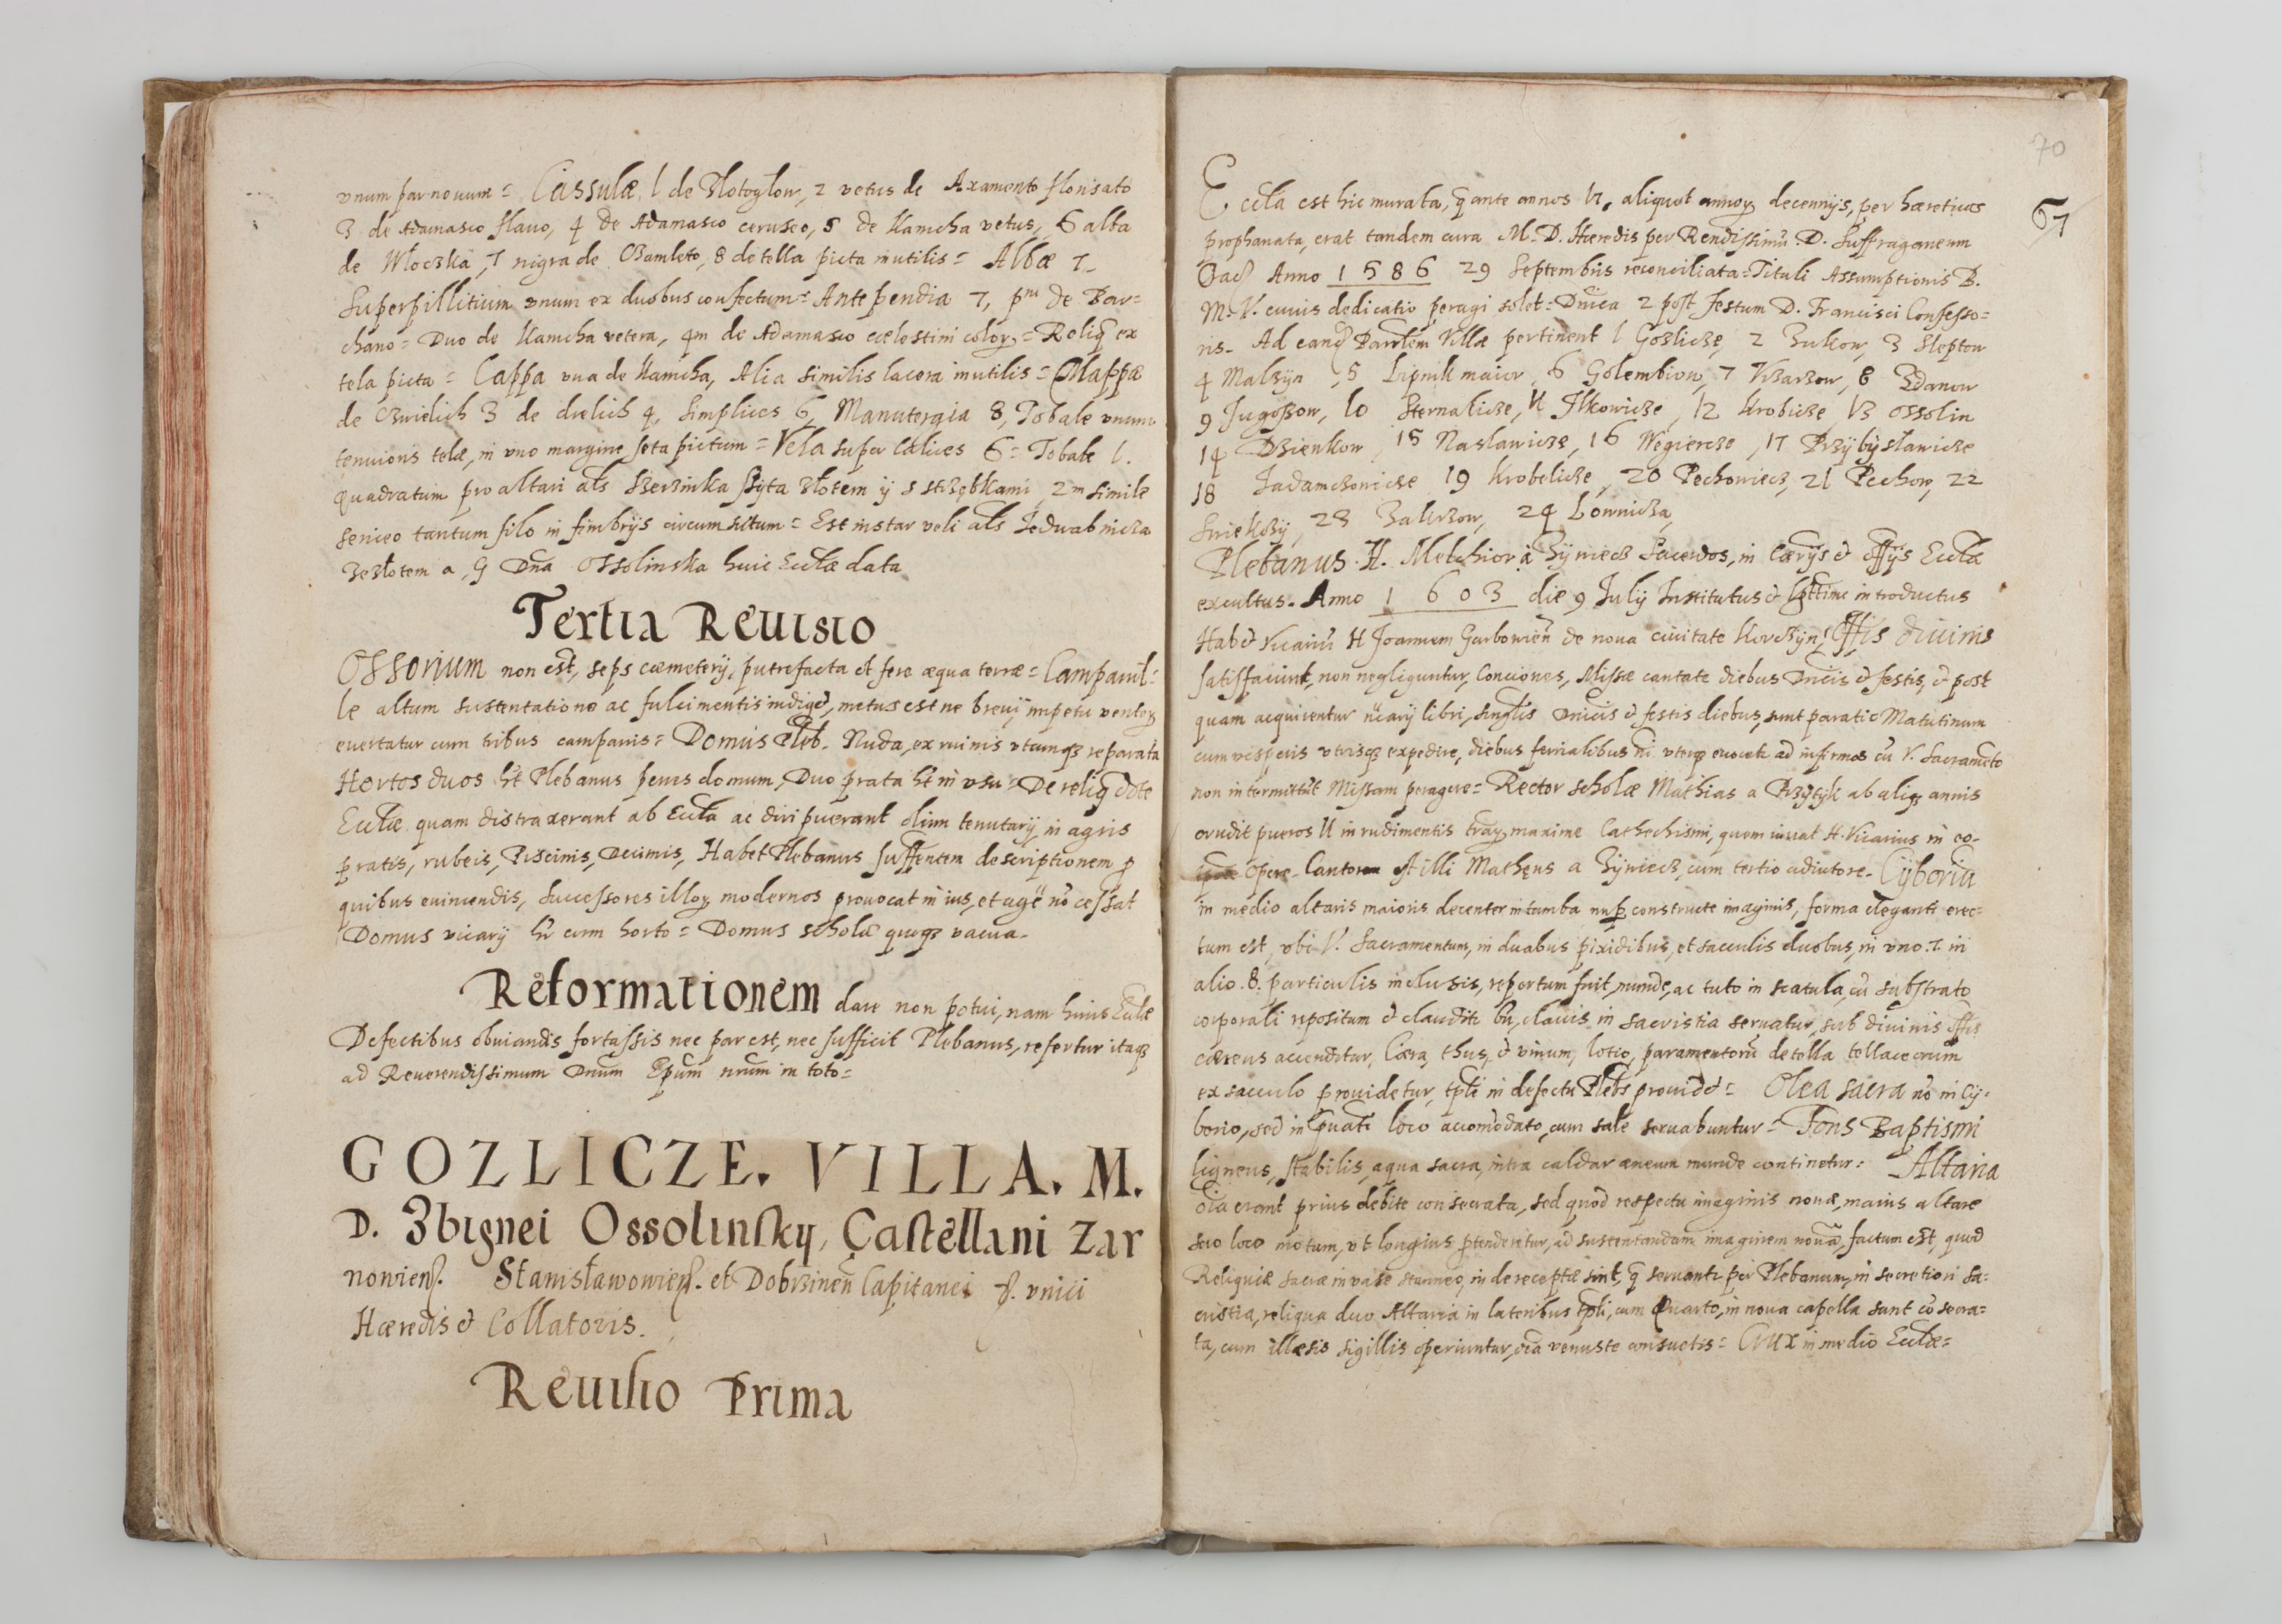 vnum par nouum = Cassulæ, 1 de Złotogłow, 2 vetus de Axamento florisato
3 de Adamasco flauo, 4 de Adamasco ceruseo, 5 de Kamcha vetus, 6 alba
de Włoczka, 7 nigra de Czamleto, 8 de tella picta inutilis = Albæ 7_
Superpillitium vnum ex duobus confectum = Antependia 7, pm de Bar-
chano = Duo de Kamcha vetera, 4m de Adamasco cœlestini color, = Reliq ex
tela picta = Cappa vna de Kamcha, Alia similis lacera inutilis = Mappæ
de Czwielich 3 de drelich 4, simplices 6, Manutergia 8, Tobale vnum
tenuioris telæ, in vno margine seta pictum = Vela super Calices 6 = Tobale 1.
quadratum pro altari als szerzinka szyta złotem y s strzębkami, 2m simile
sericeo tantum filo in fimbrijs circumsutum = Est instar veli als Jedwabnicza
ze złotem a G Dna Ossolinska huic Ecclæ data
Tertia Reuisio
Ossorium non est, seps cæmeterij, putrefacta et fere æqua terræ = Campanil-
le altum sustentatione ac fulcimentis indiget, metus est ne breui impetu ventor
euertatur cum tribus campanis = Domus Pleb. Nuda, ex ruinis vtcumq reparata
Hortos duos ht Plebanus penes domum, Duo prata ht in vsu = De reliq dote
Ecclæ quam distraxerant ab Eccla ac diripuerant olim tenutarij in agris
pratis, rubeis, Piscinis, Decimis, Habet Plebanus suffentem descriptionem p
quibus euincendis, successores illor modernos prouocat in ius, et agẽ nõ cessat
Domus vicarij ht cum horto = Domus scholæ quoq vacua_
Reformationem dare non potui, nam huius Ecclæ
Defectibus obuiandis fortassis nec par est, nec sufficit Plebanus, refertur itaq
ad Reuerendissimum Dnum Epum nrum in toto =
GOZLICZE. VILLA. M.
D. Zbignei Ossolinsky, Castellani Zar
nowien. Stanisławowien. et Dobrzinen Capitanei &. vnici
Hæredis et Collatoris.
Reuisio Prima
70
67
Eccla est hic murata, q ante annos 17, aliquot annor decennijs, per hæreticos
prophanata, erat tandem cura M. D. Hæredis per Rendissimũ D. Suffraganeum
Crac Anno 1586 29 Septembris reconciliata = Tituli Assumptionis B.
M. V. cuius dedicatio peragi solet = Dnica 2 post festum D. Francisci Confesso=
ris_ Ad eand Parrlem Villæ pertinent 1 Gozlicze, 2 Zukow, 3 Slepton
4 Malzyn, 5 Lipnik maior, 6 Golembiow, 7 Vzarzow, 8 Zdanow
9 Jugoszow, 10 Sternalicze, 11 Ilkowicze, 12 Krobicze, 13 Ossolin
14 Dzienkow, 15 Nasławicze, 16 Wegiercze, 17 Przybysławicze
18 Jadamczowicze 19 Krobelicze, 20 Pechowiecz, 21 Pechow, 22
Smiekozy, 23 Zakrzow, 24 Lownicza,
Plebanus. H. Melchior à Zyniecz Sacerdos, in Cærijs et offijs Ecclæ
excultus. Anno 1603 die 9 Julij Institutus et lgttime introductus
Habet Vicariũ H Joannem Garbowien de noua ciuitate Korczyn, Offis diuinis
satisfaciunt, non negliguntur, Conciones, Missæ cantate diebus Dnicis et festis, et post
quam acquirentur ncarij libri, singlis Dnicis et festis diebus, sunt parati e Matutinum
cum vesperis vtrisq expedire, diebus ferialibus ni vterq euocetr ad infirmos cũ V. Sacramẽto
non intermittũt Missam peragere = Rector scholæ Mathias a Przytyk ab aliq annis
erudit pueros 11 in rudimentis trar maxime Cathechismi, quem iuuat H. Vicarius in eo-
opere_ Cantor est illi Matheus a Zyniecz, cum tertio adiutore_ Cyboriũ
in medio altaris maioris decenter in tumba nup constructe imaginis, forma eleganti erec-
tum est, vbi V. Sacramentum, in duabus pixidibus, et sacculis duobus, in vno .7. in
alio .8. particulis inclusis, repertum fuit, munde, ac tuto in scatula, cũ substrato
corporali repositum et clauditr bn, clauis in sacristia seruatur, sub diuinis offis
cæreus accenditur, Cæra, thus, et vinum, lotio, paramentorũ de tella tellaceorum
ex sacculo prouidetur, tpli in defectu Plebs prouidet = Olea sacra nõ in Cy-
borio, sed in priuati loco accomodato, cum sale seruabuntur = Fons Baptismi
ligneus, stabilis, aqua sacra, intra caldar æneum munde continetur = Altaria
oia erant prius debite consecrata, sed quod respectu imaginis nouæ, maius altare
suo loco motum, vt longius ptenderetur, ad sustentandam imaginem nouã, factum est, quod
Reliquiæ sacræ in vase stanneo, inde receptæ sint, q seruantr per Plebanum, in secretiori sa=
cristia, reliqua duo Altaria in lateribus tpli, cum Quarto, in noua capella sunt cõsecra=
ta, cum illæsis sigillis operiuntur, oia venuste consuetis = Crux in medio Ecclæ =